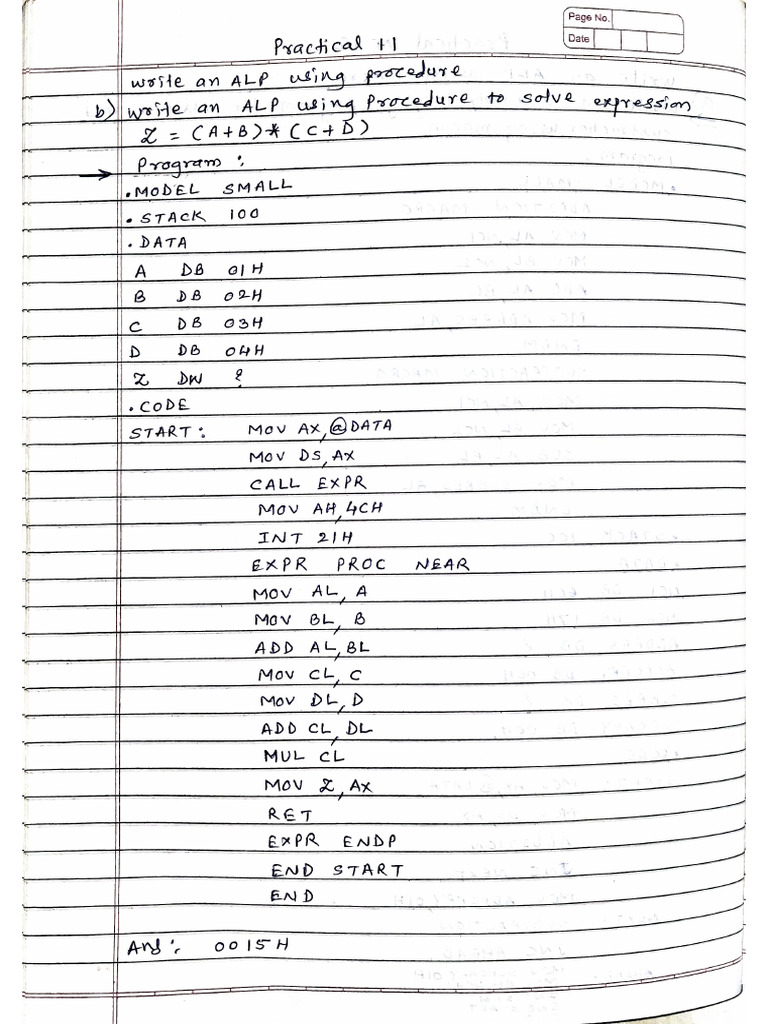 Page No.
Date
Practical 11
write an ALP using procedure
b) write an ALP using Procedure to solve expression
Z = (A+B)*(C+D)
Program:
→ .MODEL SMALL
.STACK 100
.DATA
A DB 01H
B DB 02H
C DB 03H
D DB 04H
Z DW ?
.CODE
START: MOV AX,@DATA
MOV DS,AX
CALL EXPR
MOV AH,4CH
INT 21H
EXPR PROC NEAR
MOV AL, A
MOV BL, B
ADD AL,BL
MOV CL, C
MOV DL, D
ADD CL, DL
MUL CL
MOV Z, AX
RET
EXPR ENDP
END START
END
Ans: 0015H